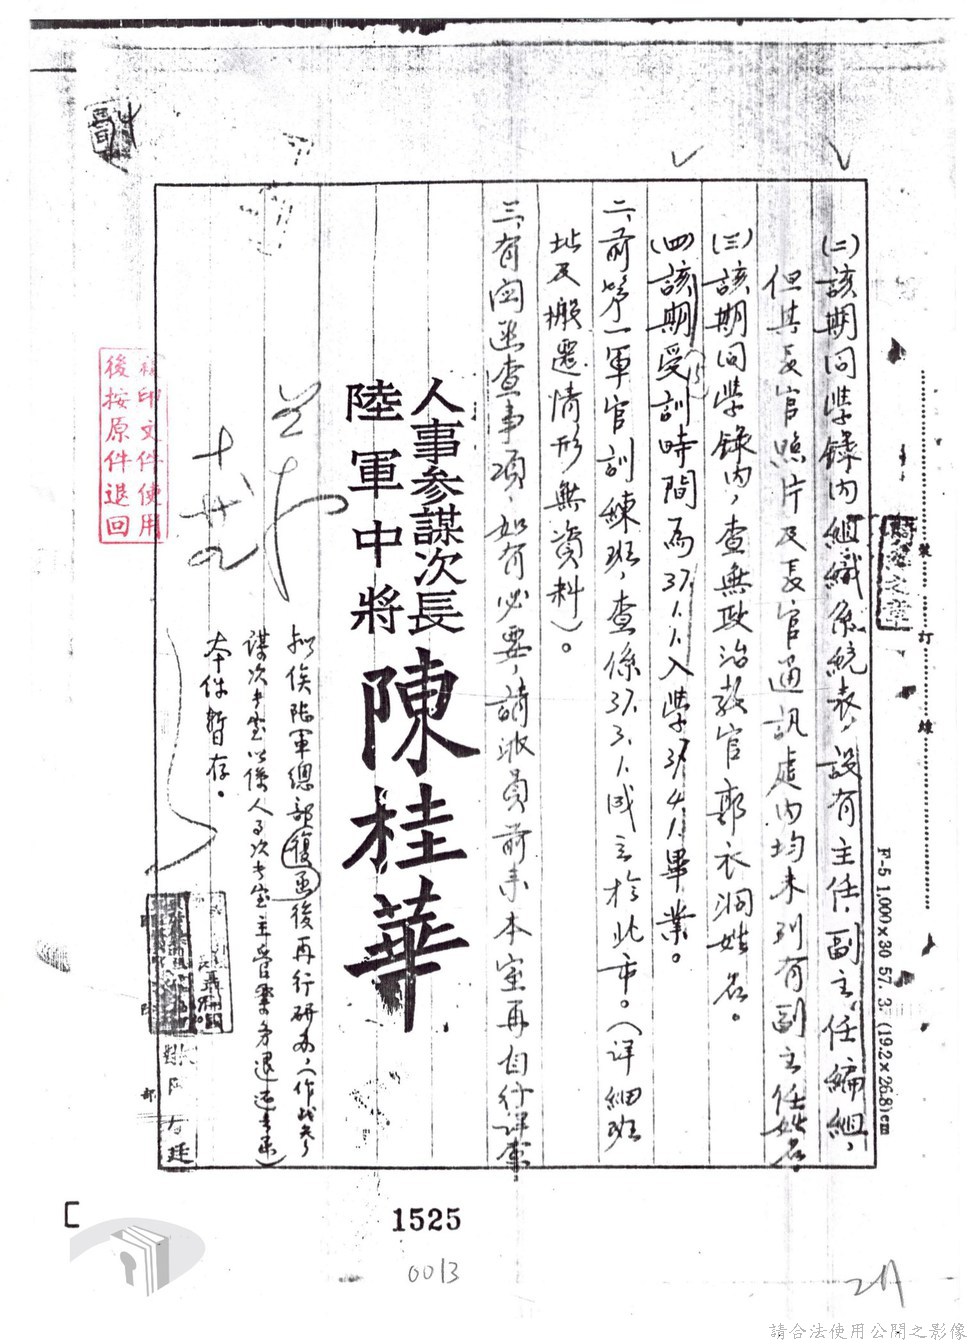 (二)該期同學錄內組織系統表，設有主任、副主任編組，
但其長官照片及長官通訊處內均未列有副主任姓名。
(三)該期同學錄內，查無政治教官郭衣洞姓名。
(四)該期受訓時間為37.1.1.入學37.4.1.畢業。
二、前第一軍官訓練班，查係37.3.1.成立於北市。（詳細班
址及搬遷情形無資料）。
三、有關函查事項，如有必要，請派員前來本室再自行詳查。
人事參謀次長
陸軍中將
陳桂華
擬俟陸軍總部復函後再行研辦，（作戰參
謀次長室以係人事次長室主管業務退還本案）
本件暫存。
複印文件使用
後按原件退回
裝
訂
線
F-5 1,000×30 57. 3. (19.2×26.8)cm
1525
0013
請合法使用公開之影像